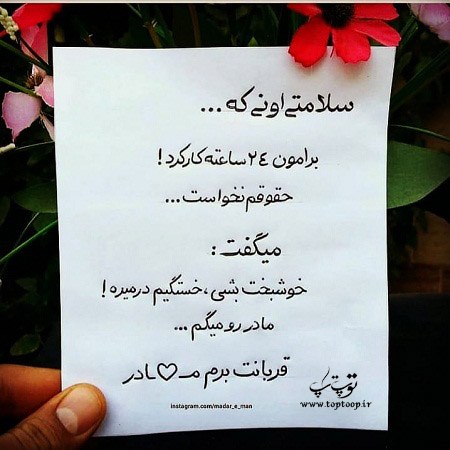 سلامتی اونی که ...
برامون ٢٤ ساعته کار کرد !
حقوقم نخواست ...
میگفت :
خوشبخت بشی ، خستگیم درمیره !
مادر رو میگم ...
قربانت برم مـ♡ـادر
توپ تاپ
www.toptoop.ir
instagram.com/madar_e_man